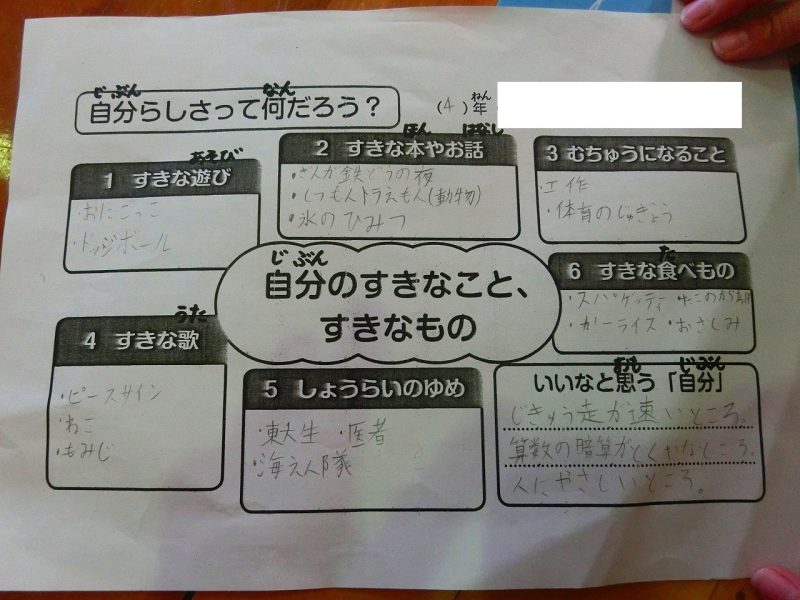 じぶん なん
自分らしさって何だろう？
ねん
(4) 年
あそび
1 すきな遊び
・おにごっこ
・ドッジボール
ほん はなし
2 すきな本やお話
・ぎんが鉄どうの夜
・しつもんドラえもん(動物)
・氷のひみつ
3 むちゅうになること
・工作
・体育のじゅぎょう
じぶん
自分のすきなこと、
すきなもの
うた
4 すきな歌
・ピースサイン
・ねこ
・もみじ
5 しょうらいのゆめ
・東大生 ・医者
・海えん隊
た
6 すきな食べもの
・スパゲッティ ・たこのから揚
・カーライス ・おさしみ
おも じぶん
いいなと思う「自分」
じきゅう走が速いところ。
算数の暗算がとくいなところ。
人にやさしいところ。